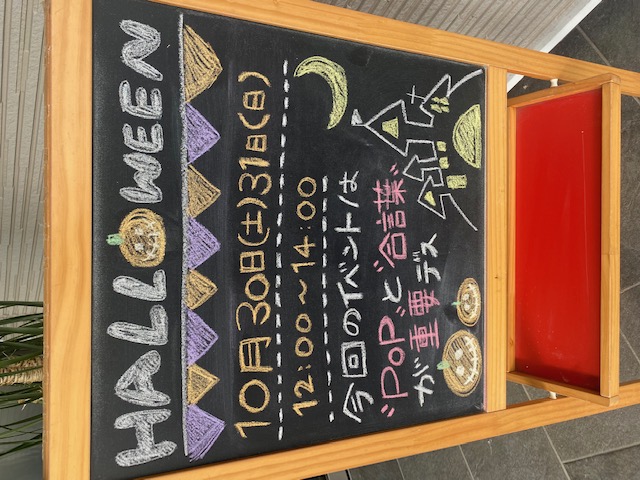 HALLOWEEN
10月30日(土)31日(日)
12:00~14:00
今回のイベントは
"PoP"と"合言葉"
が重要デス